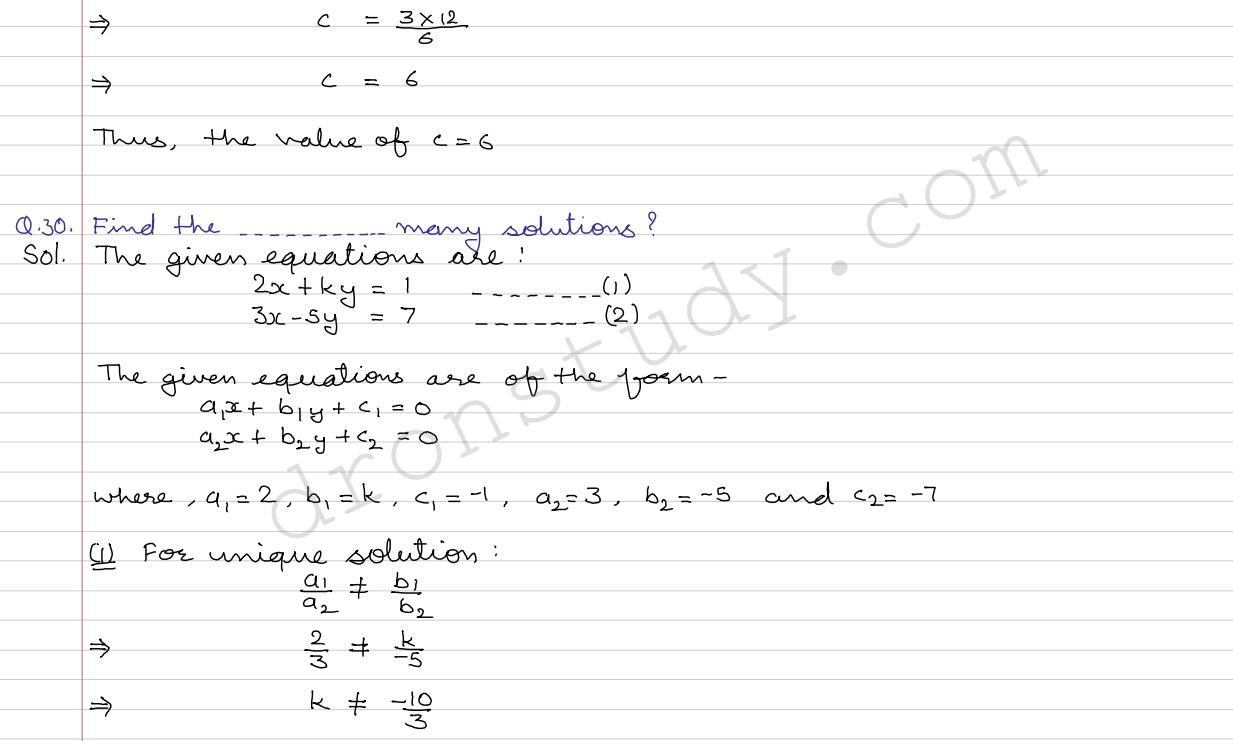 ⇒ c = 3×12/6
⇒ c = 6
Thus, the value of c = 6
Q.30. Find the ----------- many solutions?
Sol. The given equations are:
2x + ky = 1 --------(1)
3x - 5y = 7 -------(2)
The given equations are of the form -
a₁x + b₁y + c₁ = 0
a₂x + b₂y + c₂ = 0
where, a₁ = 2, b₁ = k, c₁ = -1, a₂ = 3, b₂ = -5 and c₂ = -7
(1) For unique solution:
a₁/a₂ ≠ b₁/b₂
⇒ 2/3 ≠ k/-5
⇒ k ≠ -10/3
dronstudy.com